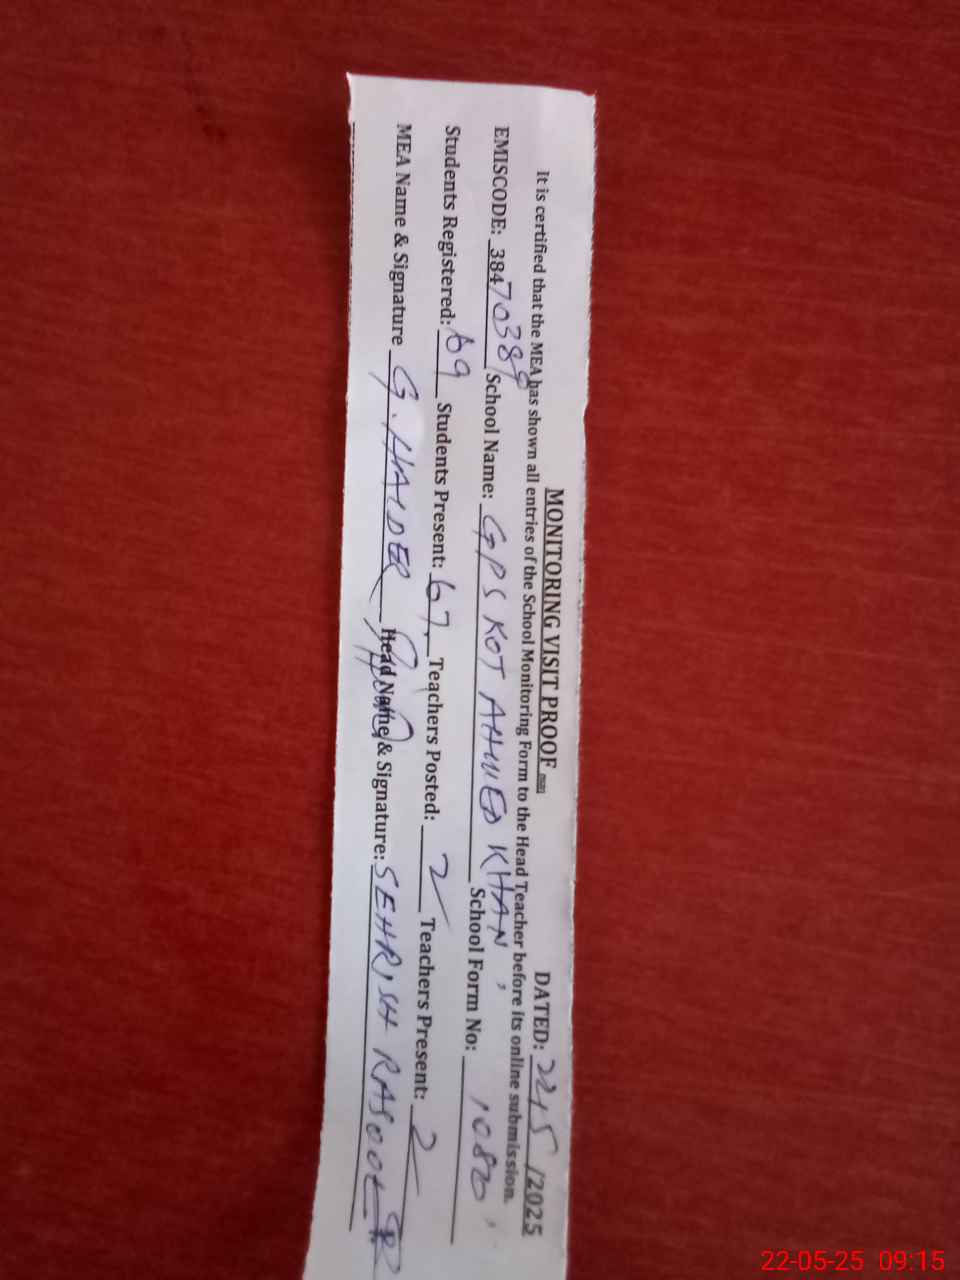 MONITORING VISIT PROOF
DATED: 22/5/2025
It is certified that the MEA has shown all entries of the School Monitoring Form to the Head Teacher before its online submission.
EMISCODE: 38470389 School Name: GPS KOT AHMED KHAN, School Form No: 1080
Students Registered: 69 Students Present: 67 Teachers Posted: 2 Teachers Present: 2
MEA Name & Signature G. HAIDER Head Name & Signature: SEHRISH RASOOL
22-05-25 09:15